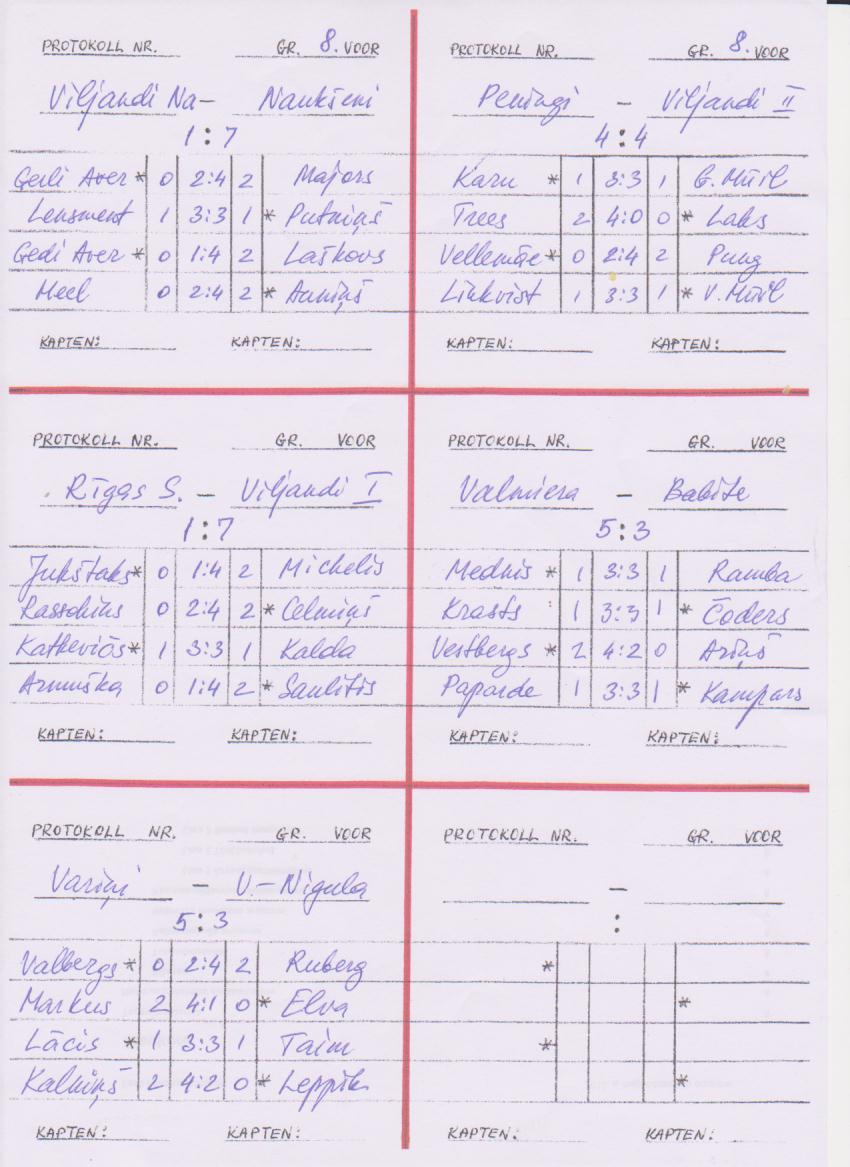 PROTOKOLL NR. GR. 8. VOOR
Viljandi Na- Naukšeni
1:7
Gerli Aver * 0 2:4 2 Majors
Lensment 1 3:3 1 * Putniņš
Gedi Aver * 0 1:4 2 Laškovs
Meel 0 2:4 2 * Auniņš
KAPTEN: KAPTEN:
PROTOKOLL NR. GR. 8. VOOR
Peningi - Viljandi II
4:4
Karu * 1 3:3 1 G. Müil
Trees 2 4:0 0 * Laks
Vellemäe * 0 2:4 2 Pung
Linkvist 1 3:3 1 * V. Müil
KAPTEN: KAPTEN:
PROTOKOLL NR. GR. VOOR
Rīgas S. - Viljandi I
1:7
Jukštaks * 0 1:4 2 Michelis
Rassohins 0 2:4 2 * Celmiņš
Katkevičs * 1 3:3 1 Kalda
Azmuška 0 1:4 2 * Saulītis
KAPTEN: KAPTEN:
PROTOKOLL NR. GR. VOOR
Valmiera - Babīte
5:3
Mednis * 1 3:3 1 Ramba
Krasts 1 3:3 1 * Čoders
Vestbergs * 2 4:2 0 Ariņš
Paparde 1 3:3 1 * Kampars
KAPTEN: KAPTEN:
PROTOKOLL NR. GR. VOOR
Variņi - V.-Nigula
5:3
Valbergs * 0 2:4 2 Ruberg
Markus 2 4:1 0 * Elva
Lācis * 1 3:3 1 Taim
Kalniņš 2 4:2 0 * Leppik
KAPTEN: KAPTEN:
PROTOKOLL NR. GR. VOOR
-
:
*
*
*
*
KAPTEN: KAPTEN: